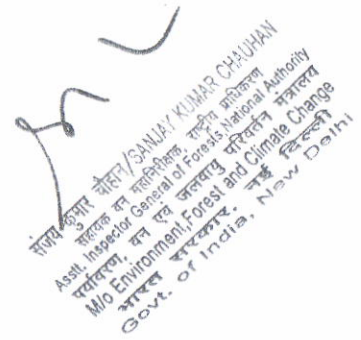 संजय कुमार चौहान/SANJAY KUMAR CHAUHAN
सहायक वन महानिरीक्षक, राष्ट्रीय प्राधिकरण
Asstt. Inspector General of Forests, National Authority
पर्यावरण, वन एवं जलवायु परिवर्तन मंत्रालय
M/o Environment, Forest and Climate Change
भारत सरकार, नई दिल्ली
Govt. of India, New Delhi